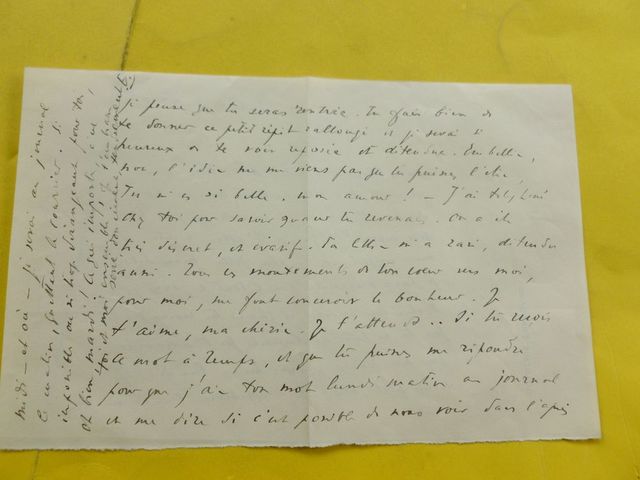 je pense que tu seras rentrée. Tu as bien de
te donner ce petit répit rallongé et je serai si
heureux de te voir reposée et détendue. Embellie,
non, l'idée ne me viens pas que tu puisses l'être,
Tu es si belle, mon amour ! — J'ai téléphoné
chez toi pour savoir quand tu revenais. On a été
très discret, et évasif. Ta lettre m'a ravi, détendu
aussi. Tous ces mouvements de ton coeur vers moi,
pour moi, me font concevoir le bonheur. Je
t'aime, ma chérie. Je t'attends.. Si tu reçois
ce mot à temps, et que tu puisses me répondre
pour que j'aie ton mot lundi matin au journal
et me dire si c'est possible de nous voir dans l'après
midi — et où — je serai au journal
ce matin, guettant le courrier. Si
impossible ou si trop dérangeant pour toi,
et bien mardi ! Ce qui importe, c'est
toi et moi ensemble ! Je t'embrasse